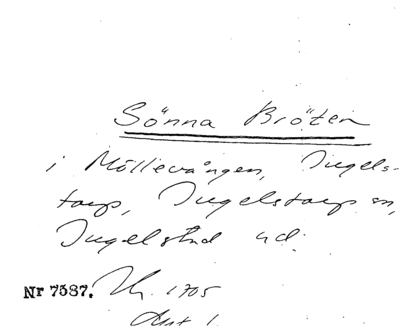 Sönna Bröten
i Möllevången, Ingels-
torp, Ingelstorp sn,
Ingelstad hd.
Nr 7587. 1705